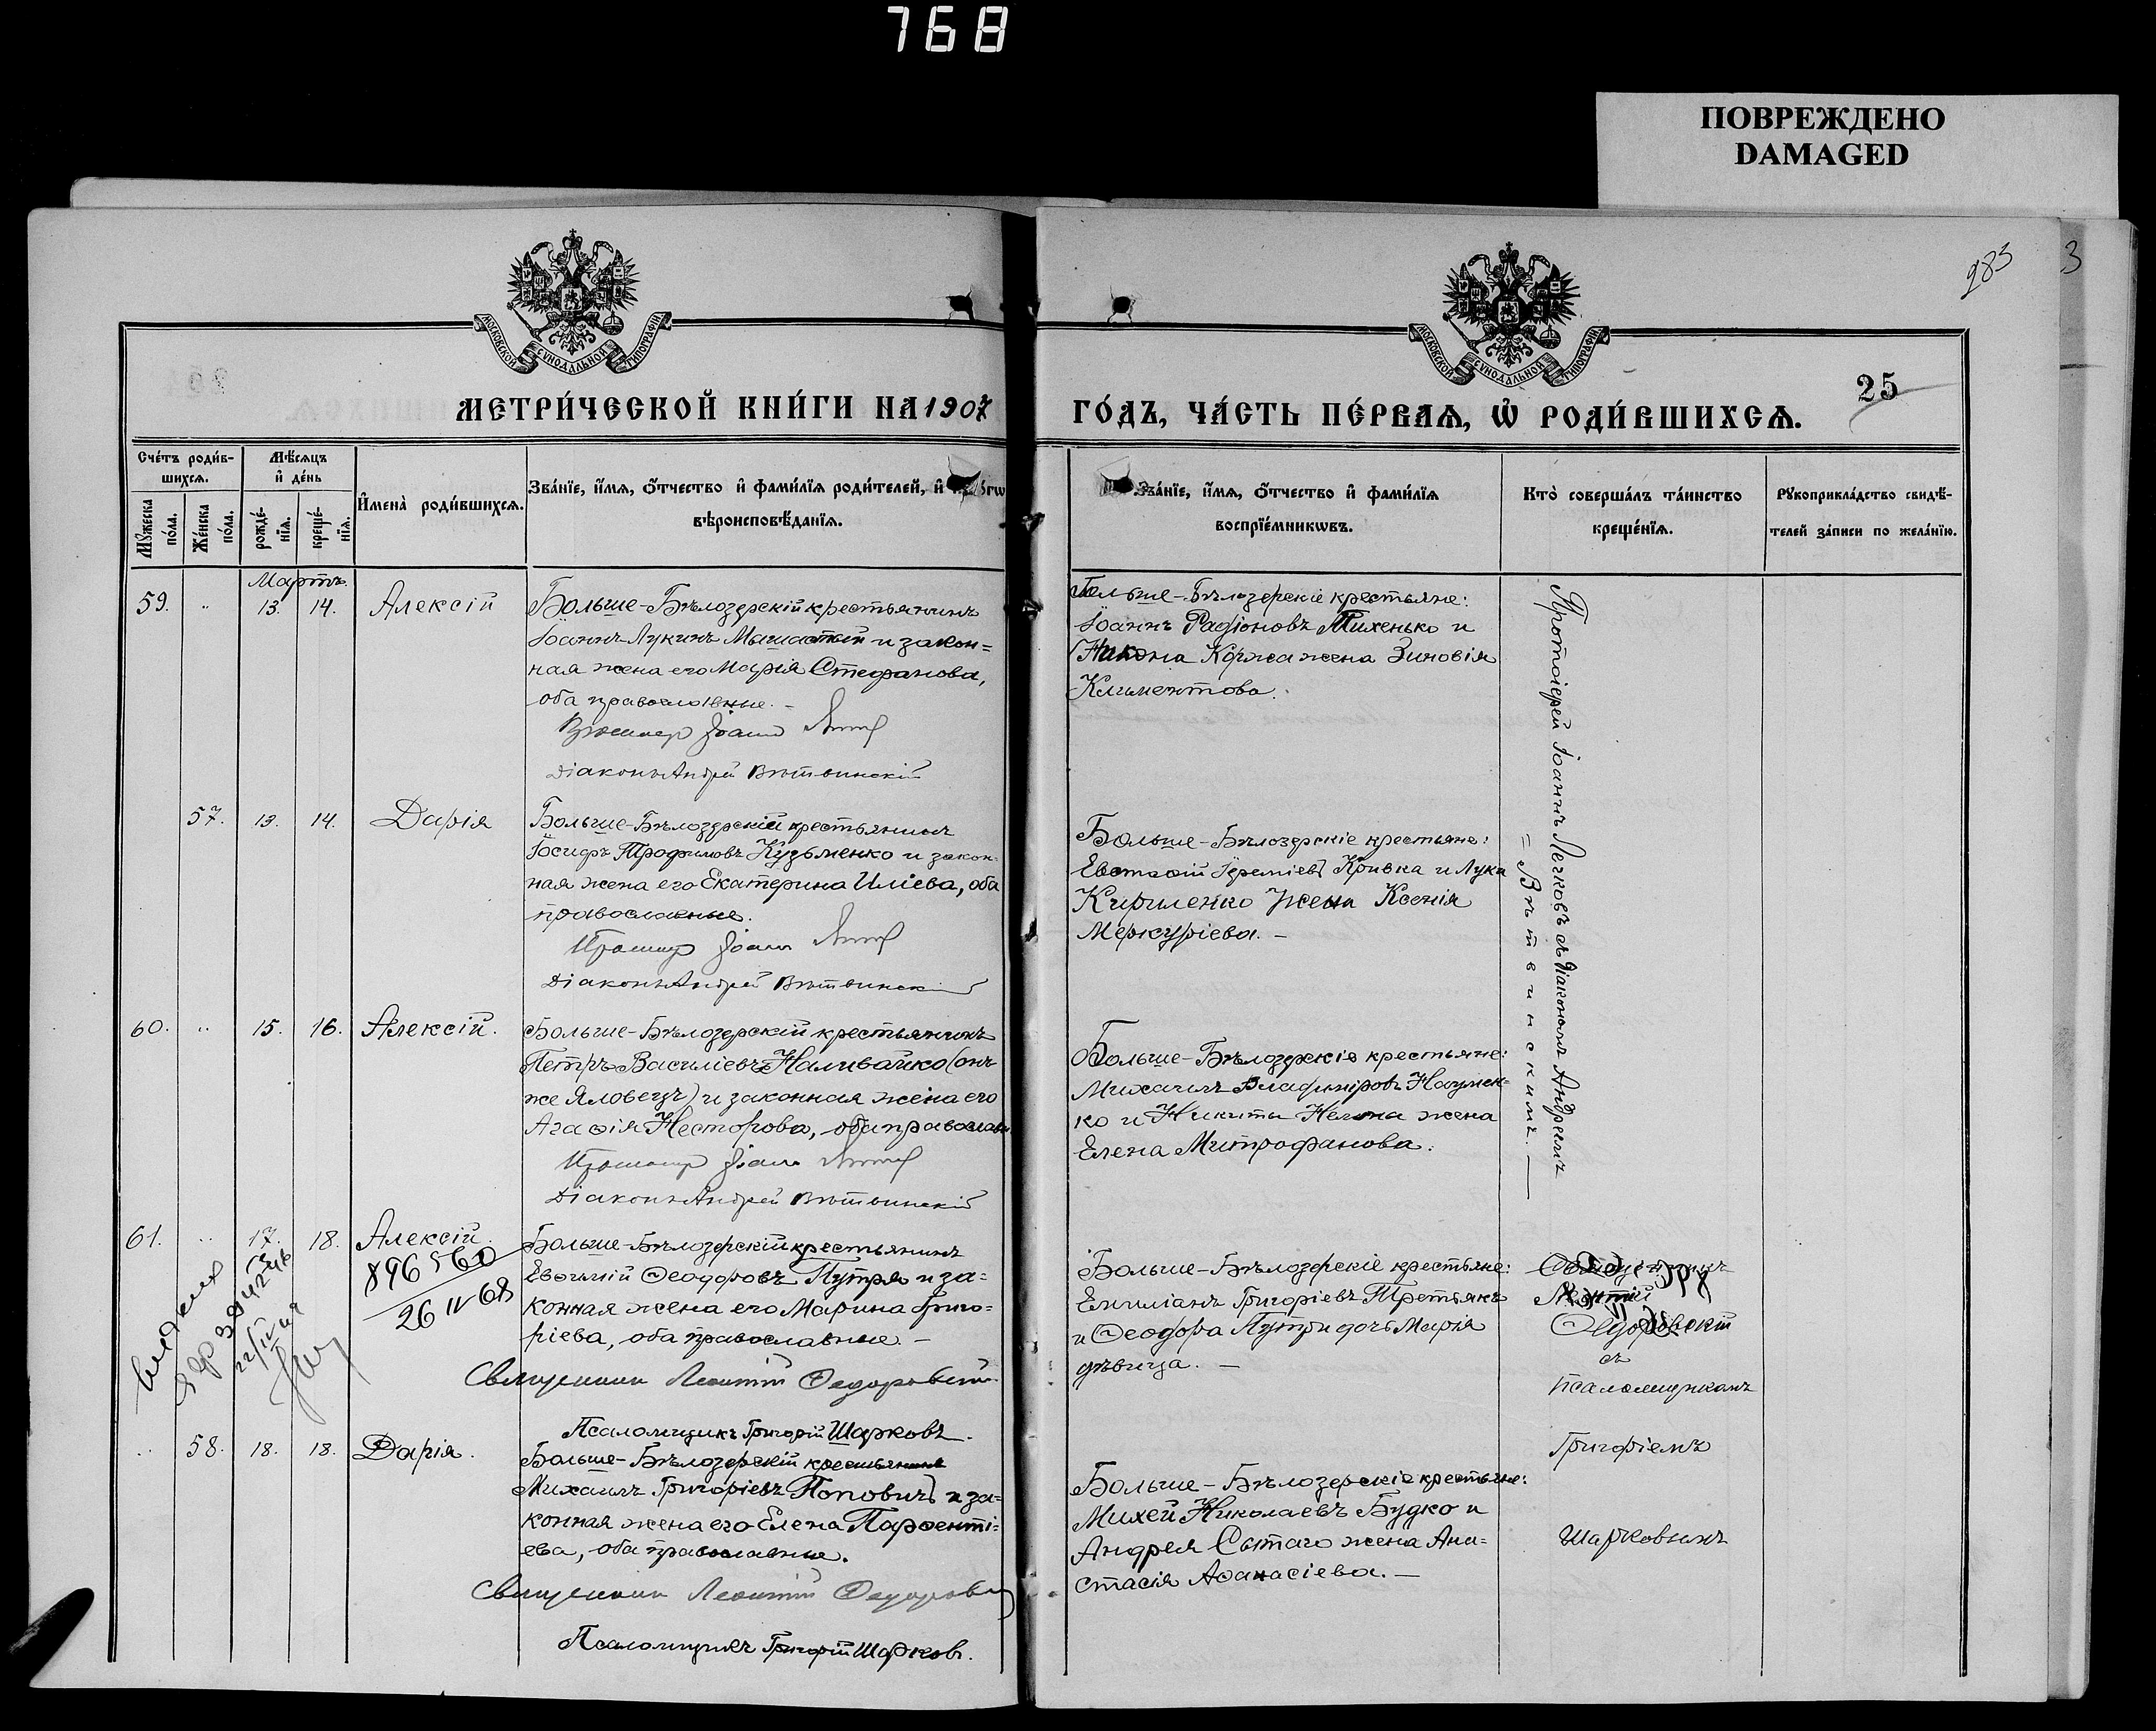 768
ПОВРЕЖДЕНО
DAMAGED
283
3
МОСКОВСКОЙ СѴНОДАЛЬНОЙ ТИПОГРАФІИ
МОСКОВСКОЙ СѴНОДАЛЬНОЙ ТИПОГРАФІИ
25
МЕТРИ́ЧЕСКОЙ КНИ́ГИ НА 1907
ГО́ДЪ, ЧА́СТЬ ПЕ́РВАѦ, Ѡ҆ РОДИ́ВШИХСѦ.
Сче́тъ роди́в-
шихсѧ.
Мꙋ́жеска по́ла.
Же́нска по́ла.
Мѣ́сѧцъ
и҆ де́нь
рожде́-нїѧ.
креще́-нїѧ.
И҆мена̀ роди́вшихсѧ.
Зва́нїе, и҆́мѧ, ѻ҆́тчество и҆ фами́лїѧ роди́телей, и҆
вѣроисповѣ́данїѧ.
Зва́нїе, и҆́мѧ, ѻ҆́тчество и҆ фами́лїѧ
воспрїе́мникѡвъ.
Кто̀ соверша́лъ та́инство
креще́нїѧ.
Рꙋкоприкла́дство свидѣ́-
телей за́писи по жела́нїю.
Мартъ.
59. " 13. 14. Алексій
Больше-Бѣлозерскій крестьянинъ
Іоаннъ Лукинъ Машастый и закон=
ная жена его Марія Стефанова,
оба православные. -
Іоаннъ
Діаконъ Андрей Вѣтвинскій
Больше-Бѣлозерскіе крестьяне:
Іоаннъ Радіоновъ Тихенько и
Никона Коржа жена Зиновія
Климентова.
Протоіерей Іоаннъ Легковъ съ діакономъ Андреемъ
= Вѣтвинскимъ. —
57. 13. 14. Дарія
Больше-Бѣлозерскій крестьянинъ
Іосифъ Трофимовъ Кузьменко и закон-
ная жена его Екатерина Иліева, оба
православные.
Іоаннъ
Діаконъ Андрей Вѣтвинскій
Больше-Бѣлозерскіе крестьяне:
Евстафій Іереміевъ Кривка и Луки
Кириленко жена Ксенія
Меркуріева. -
60. " 15. 16. Алексій.
Больше-Бѣлозерскій крестьянинъ
Петръ Василіевъ Наливайко (онъ
же Яловецъ) и законная жена его
Агаѳія Несторова, оба православн
Іоаннъ
Діаконъ Андрей Вѣтвинскій
Больше-Бѣлозерскіе крестьяне:
Михаилъ Владиміровъ Наумен-
ко и Никиты жена
Елена Митрофанова.
61. " 17. 18. Алексій.
896560
26 IV 68
Больше-Бѣлозерскій крестьянинъ
Евѳимій Ѳеодоровъ Путря и за=
конная жена его Марина Григо=
ріева, оба православные. -
Священникъ Леонтій Федоровскій
Псаломщикъ Григорій Шарковъ.
Больше-Бѣлозерскіе крестьяне:
Емиліанъ Григоріевъ Третьякъ
и Ѳеодора Путри дочь Марія
дѣвица. -
Священникъ
Леонтій
Ѳедоровскій
съ
псаломщикомъ
Григоріемъ
Шарковымъ
" 58. 18. 18. Дарія.
Больше-Бѣлозерскій крестьянинъ
Михаилъ Григоріевъ Поповичъ и за=
конная жена его Елена Парѳенті=
ева, оба православные.
Священникъ Леонтій Федоровскій
Псаломщикъ Григорій Шарковъ.
Больше-Бѣлозерскіе крестьяне:
Михей Николаевъ Будко и
Андрея Сытаго жена Ана=
стасія Аѳанасіева. —